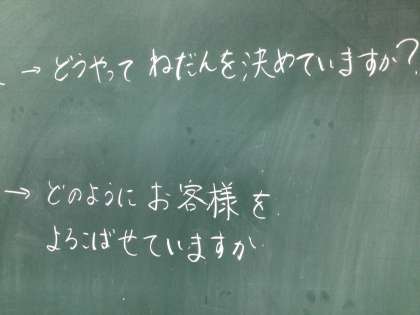 → どうやって ねだんを決めていますか?
→ どのように お客様を
よろこばせていますか